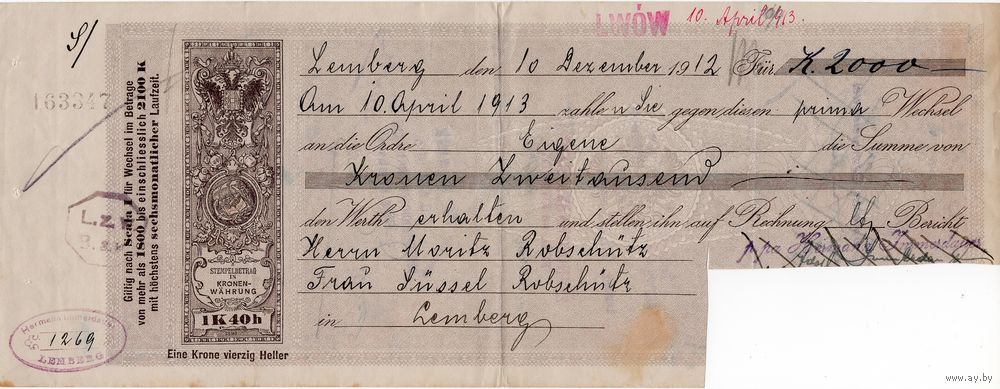 S/
LWÓW 10. April 1913.
163347
Giltig nach Scala I für Wechsel im Betrage
von mehr als 1800 bis einschliesslich 2100 K
mit höchstens sechsmonatlicher Laufzeit.
STEMPELBETRAG
IN
KRONEN-
WÄHRUNG
1K40h
Eine Krone vierzig Heller
Lemberg den 10 Dezember 1912 Für K. 2000
Am 10 April 1913 zahlen Sie gegen diesen prima Wechsel
an die Ordre Eigene die Summe von
Kronen Zweitausend
den Werth erhalten und stellen ihn auf Rechnung Bericht
Herrn Moritz Robschütz
Frau Süssel Robschütz
in Lemberg
L.Z.
1269
LEMBERG
www.ay.by